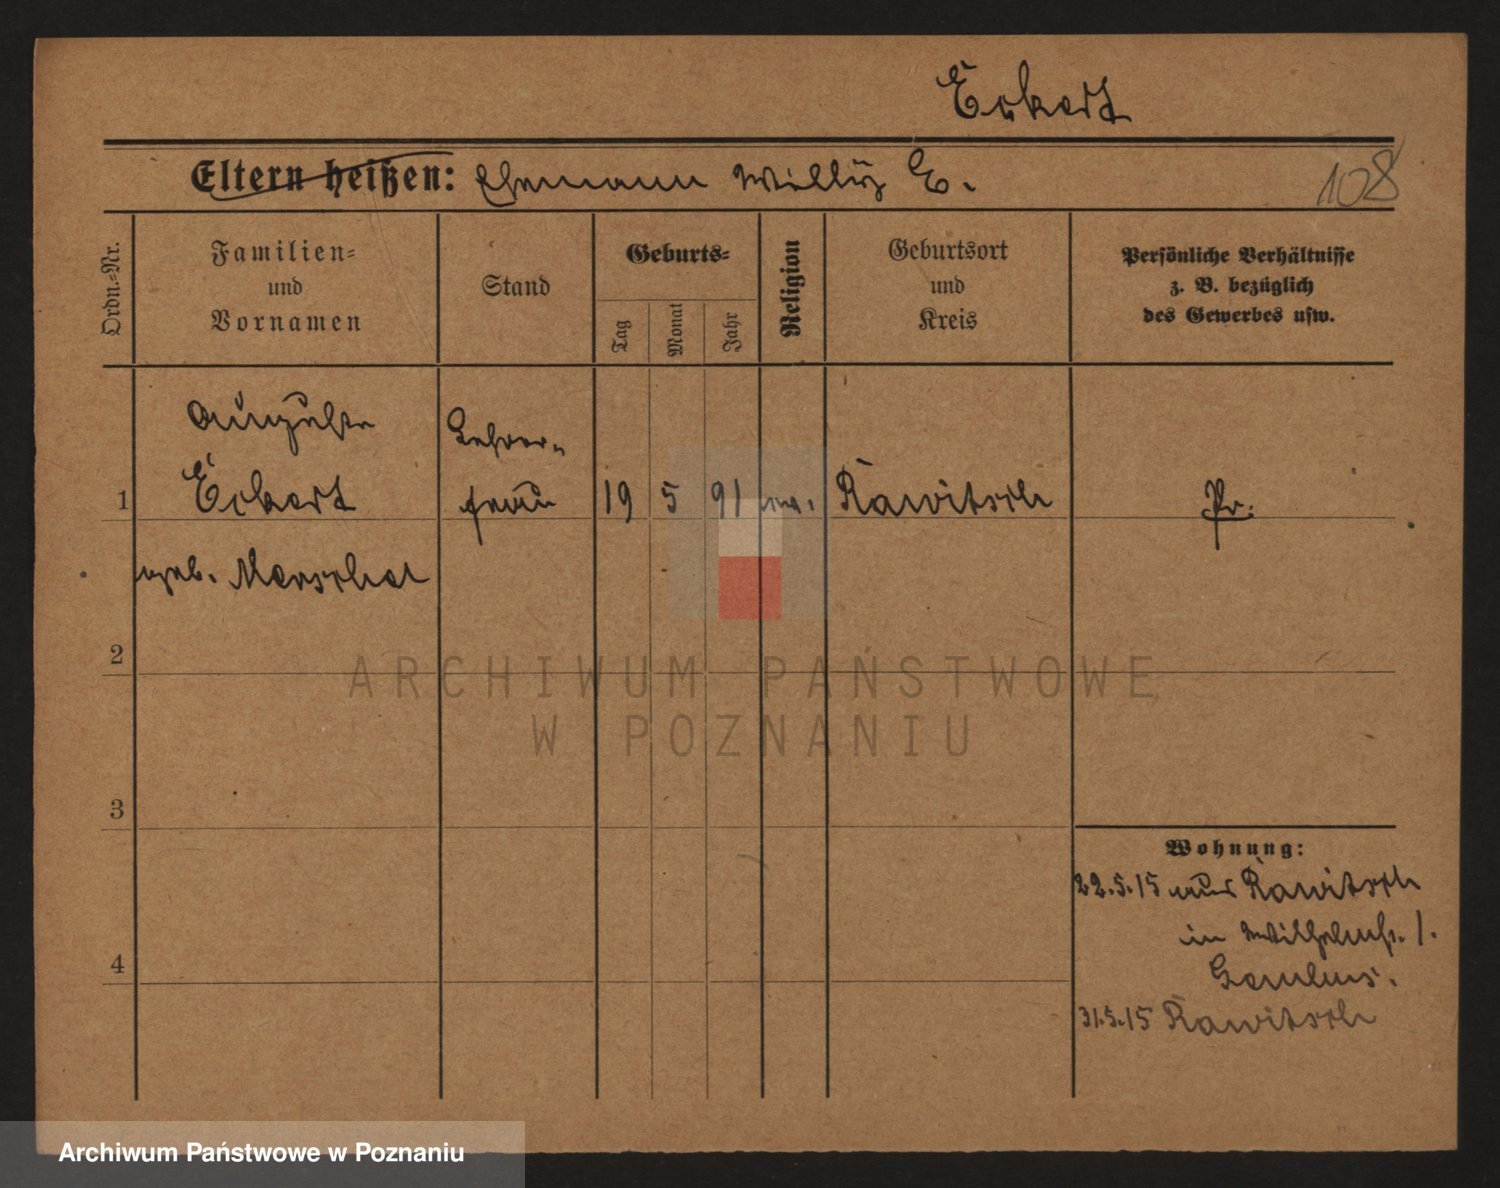 Eckert
Eltern heißen: Ehemann Willy E.
108
Ordn.-Nr.
Familien-
und
Vornamen
Stand
Geburts-
Tag
Monat
Jahr
Religion
Geburtsort
und
Kreis
Persönliche Verhältnisse
z. B. bezüglich
des Gewerbes usw.
1
Auguste
Eckert
geb.
Lehrer-
frau
19 5 91
Rawitsch
Pr.
2
3
4
Wohnung:
22.5.15 aus Rawitsch
in Wilhelmstr. 1.
31.5.15 Rawitsch
ARCHIWUM PAŃSTWOWE
W POZNANIU
Archiwum Państwowe w Poznaniu